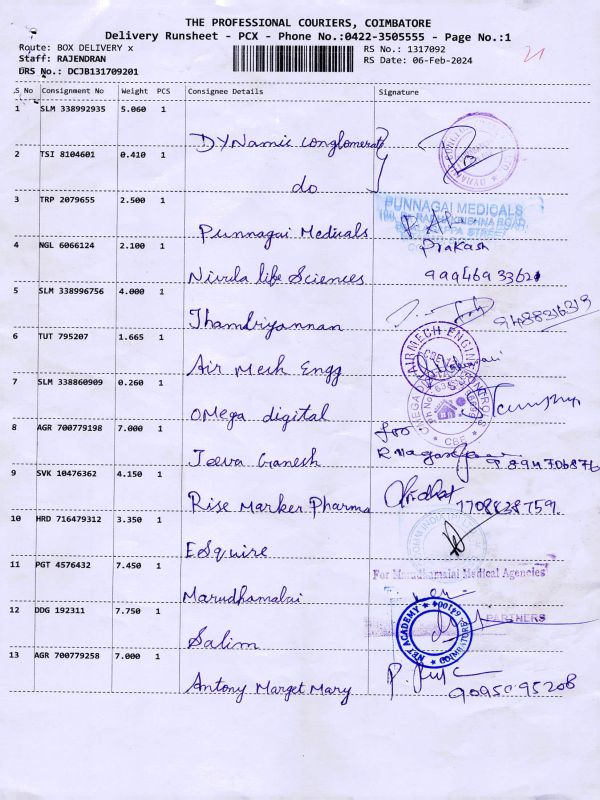 THE PROFESSIONAL COURIERS, COIMBATORE
Delivery Runsheet - PCX - Phone No.:0422-3505555 - Page No.:1
Route: BOX DELIVERY x
RS No.: 1317092
21
Staff: RAJENDRAN
RS Date: 06-Feb-2024
DRS No.: DCJB131709201
S No Consignment No Weight PCS Consignee Details Signature
1 SLM 338992935 5.060 1
DYNamic conglomerate
2 TSI 8104601 0.410 1
do
3 TRP 2079655 2.500 1
PUNNAGAI MEDICALS
Punnagai Medicals
4 NGL 6066124 2.100 1
Prakash
Nivula life Sciences
9994693362
5 SLM 338996756 4.000 1
9488316313
Thandriyannan
6 TUT 795207 1.665 1
AIRMECH ENGINE
Air Mech Engg
7 SLM 338860909 0.260 1
OMEGA DIGITAL CONTROLS
CBE
OMega digital
8 AGR 700779198 7.000 1
for
Jeeva Ganesh
9894706876
9 SVK 10476362 4.150 1
Rise Marker Pharma
7708828759
10 HRD 716479312 3.350 1
ESquire
11 PGT 4576432 7.450 1
For Marudhamalai Medical Agencies
Marudhamalai
12 DDG 192311 7.750 1
PARTNERS
NET ACADEMY ★ COIMBATORE-641004 ★
Salim
13 AGR 700779258 7.000 1
Antony Marget Mary
9095095208